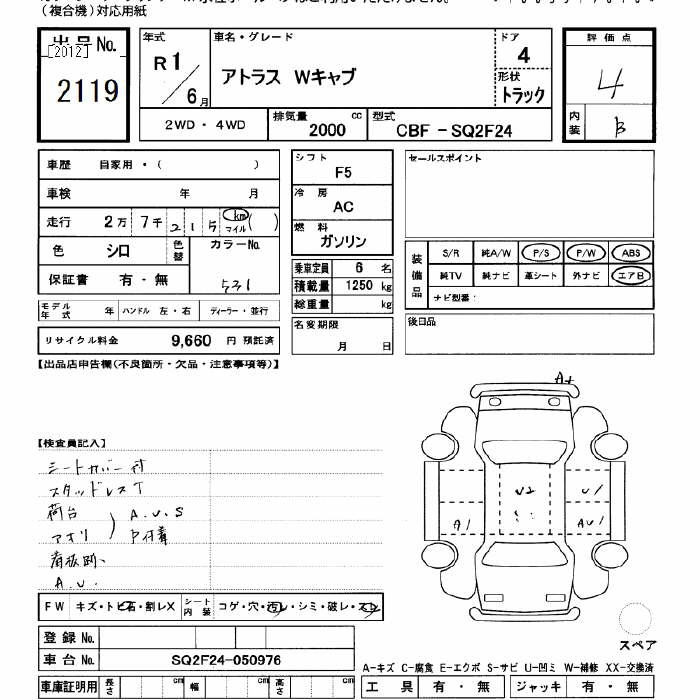 (複合機)対応用紙
出品No.
[2012]
2119
年式
R1/6月
車名・グレード
アトラス Wキャブ
ドア
4
形状
トラック
評価点
4
内装
B
2WD・4WD
排気量
2000 cc
型式
CBF-SQ2F24
車歴 自家用・( )
車検 年 月
走行 2万 7千 215 km マイル ( )
色 シロ 色替 カラーNo. 531
保証書 有・無
モデル年式 年 ハンドル 左・右 ディーラー・並行
リサイクル料金 9,660 円 預託済
シフト
F5
冷房
AC
燃料
ガソリン
乗車定員 6 名
積載量 1250 kg
総重量 kg
名変期限
月 日
セールスポイント
装備品
S/R 純A/W P/S P/W ABS
純TV 純ナビ 革シート 外ナビ エアB
ナビ型番:
後日品
【出品店申告欄(不良箇所・欠品・注意事項等)】
【検査員記入】
シートカバー付
スタッドレスT
荷台
アオリ
) A.U.S
P付着
看板跡、
A.U.
A1
U2
U1
AU1
FW キズ・トビ石・割レX シート内装 コゲ・穴・汚レ・シミ・破レ・スレ
登録No.
車台No. SQ2F24-050976
車庫証明用 長さ cm 幅 cm 高さ cm
スペア
A-キズ C-腐食 E-エクボ S-サビ U-凹ミ W-補修 XX-交換済
工具 有・無 ジャッキ 有・無